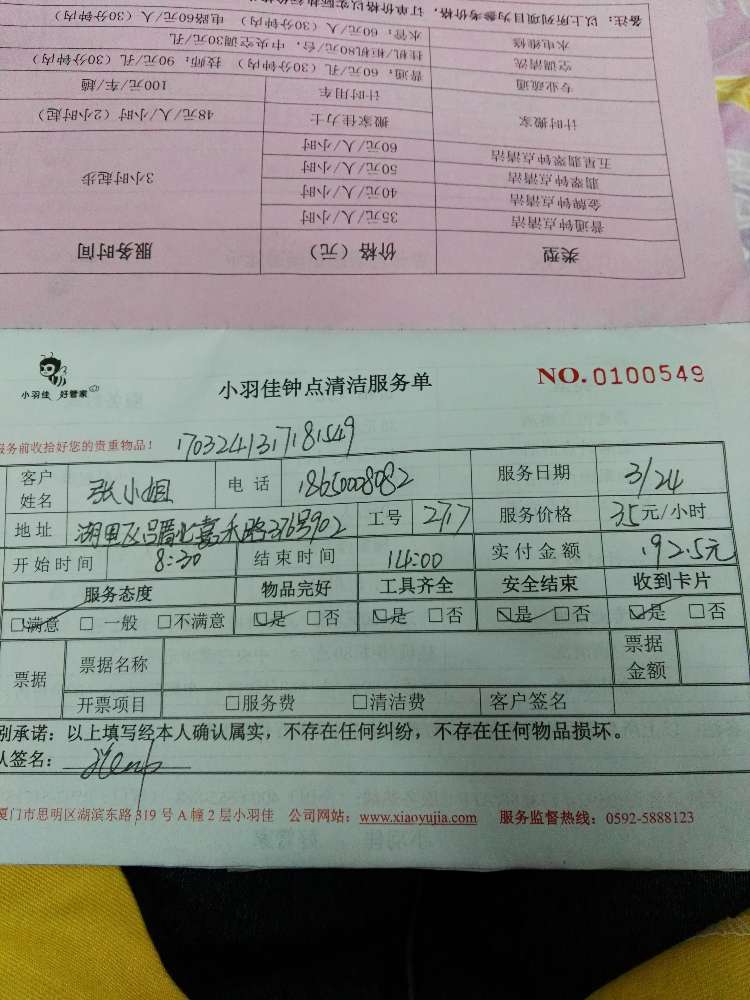 备注：以上所列项目为参考价格，订单价格以实际
水电维修 水管：60元/人（30分钟内） 电路60元/人（30分钟内）
空调清洗 挂机/柜机80元/台，中央空调30元/孔
专业疏通 普通：60元/孔（30分钟内） 技师：90元/孔（30分钟内）
计时用车 100元/车/趟
计时搬家 搬家佳力士 48元/人/小时（2小时起）
五星翡翠钟点清洁 60元/人/小时
翡翠钟点清洁 50元/人/小时
金牌钟点清洁 40元/人/小时
普通钟点清洁 35元/人/小时
3小时起步
类型 价格（元） 服务时间
小羽佳 好管家
小羽佳钟点清洁服务单
NO.0100549
服务前收拾好您的贵重物品！ 1703241317181549
客户姓名 张小姐 电话 1865008082 服务日期 3/24
地址 湖里区吕厝北嘉禾路376号902 工号 2717 服务价格 35元/小时
开始时间 8:30 结束时间 14:00 实付金额 192.5元
服务态度 物品完好 工具齐全 安全结束 收到卡片
☑满意 □一般 □不满意 ☑是 □否 ☑是 □否 ☑是 □否 ☑是 □否
票据 票据名称 票据金额
开票项目 □服务费 □清洁费 客户签名
别承诺：以上填写经本人确认属实，不存在任何纠纷，不存在任何物品损坏。
人签名：
厦门市思明区湖滨东路319号A幢2层小羽佳 公司网站：www.xiaoyujia.com 服务监督热线：0592-5888123